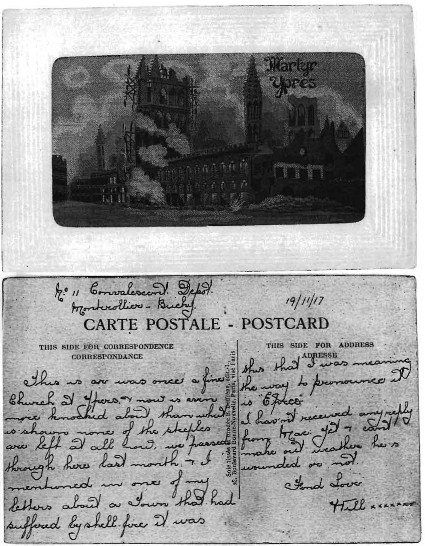 Martyr
Ypres
No 11 Convalescent Depot
Montérollier - Buchy
19/11/17
CARTE POSTALE - POSTCARD
THIS SIDE FOR CORRESPONDENCE
CORRESPONDANCE
This is or was once a fine
Church at Ypers, & now is even
more knocked about than what
is shown none of the steeples
are left at all now we passed
through here last month, & I
mentioned in one of my
letters about a Town that had
suffered by shell-fire it was
THIS SIDE FOR ADDRESS
ADRESSE
this that I was meaning
the way to pronounce it
is
I havn't received any reply
from Mac. yet & cant
make out weather he is
wounded or not.
Fond Love
xxxxxxx